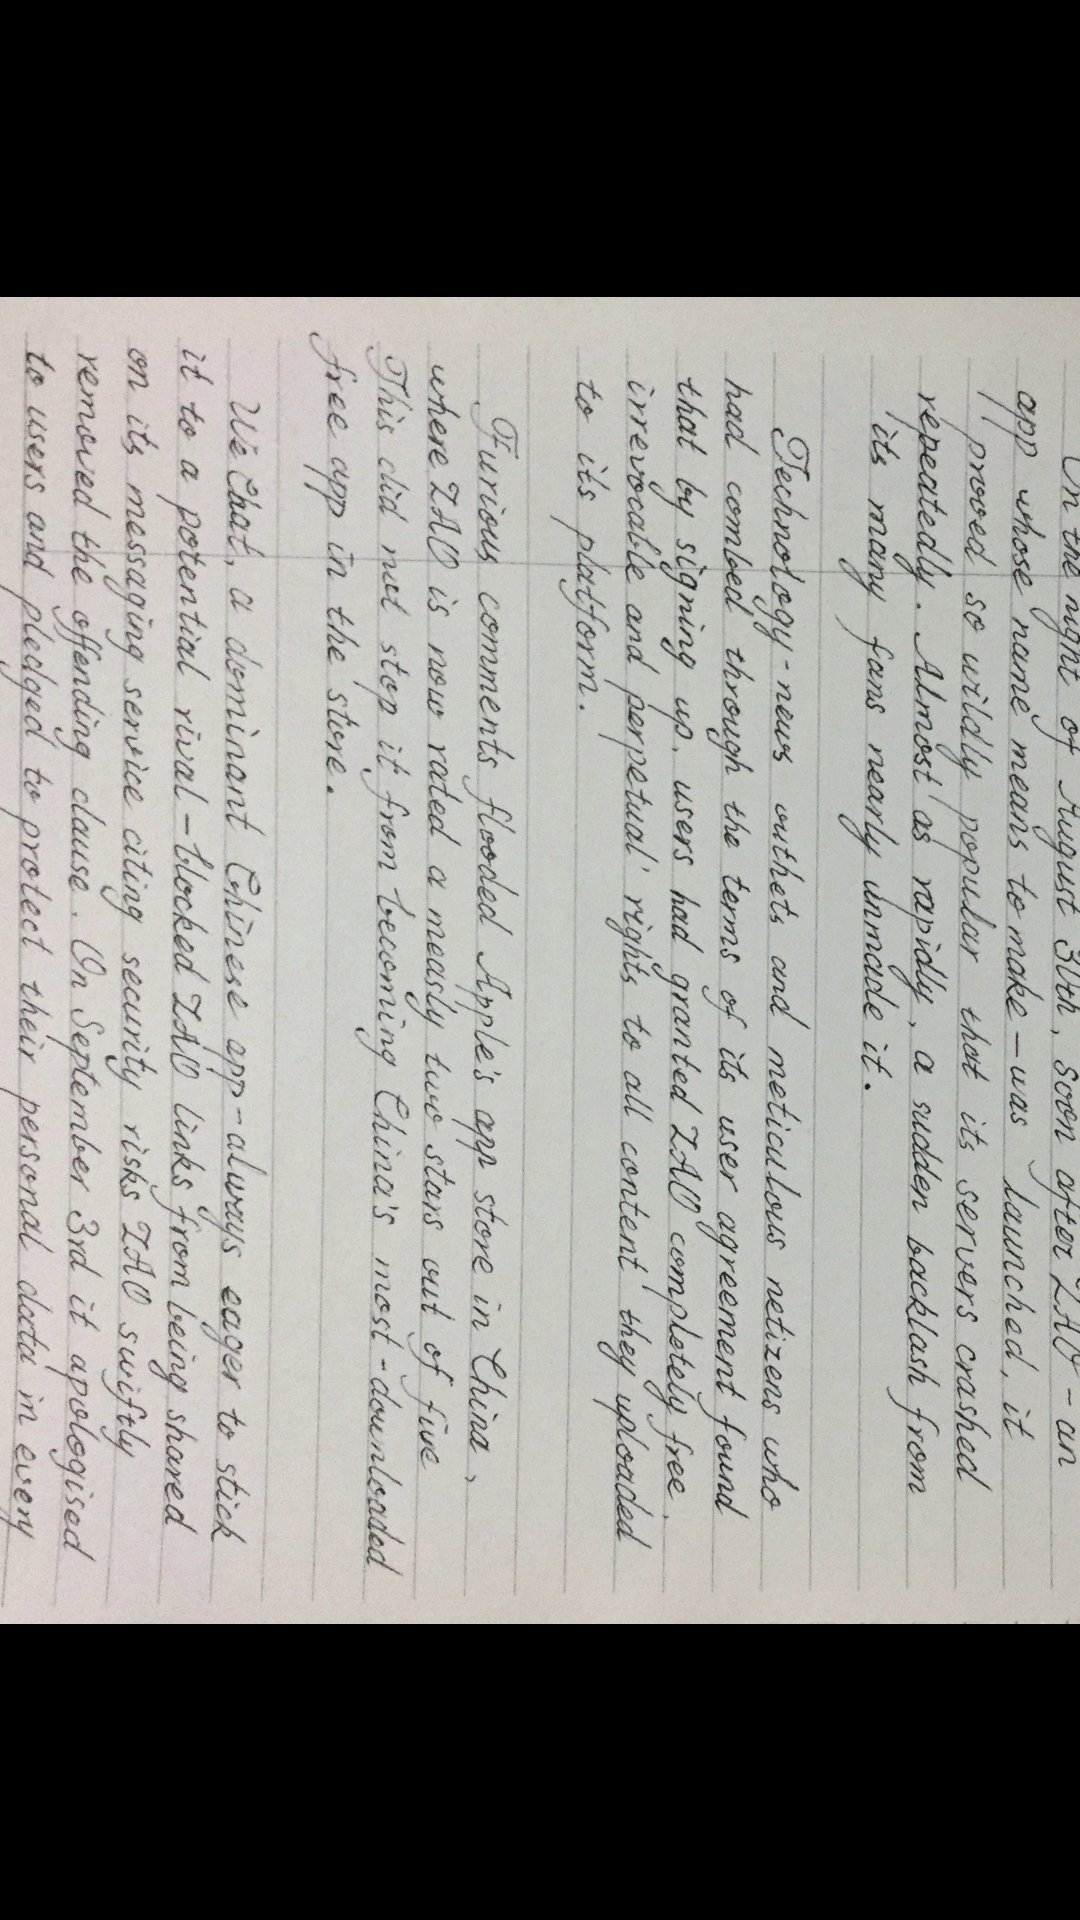 On the night of August 30th, soon after ZAO - an
app whose name means to make - was launched, it
proved so wildly popular that its servers crashed
repeatedly. Almost as rapidly, a sudden backlash from
its many fans nearly unmade it.
Technology-news outhets and meticulous netizens who
had combed through the terms of its user agreement found
that by signing up, users had granted ZAO completely free,
irrevocable and perpetual rights to all content they uploaded
to its platform.
Furious comments flooded Apple's app store in China,
where ZAO is now rated a measly two stars out of five
This did not stop it from becoming China's most-downloaded
free app in the store.
WeChat, a dominant Chinese app-always eager to stick
it to a potential rival-blocked ZAO links from being shared
on its messaging service citing security risks ZAO swiftly
removed the offending clause. On September 3rd it apologised
to users and pledged to protect their personal data in every